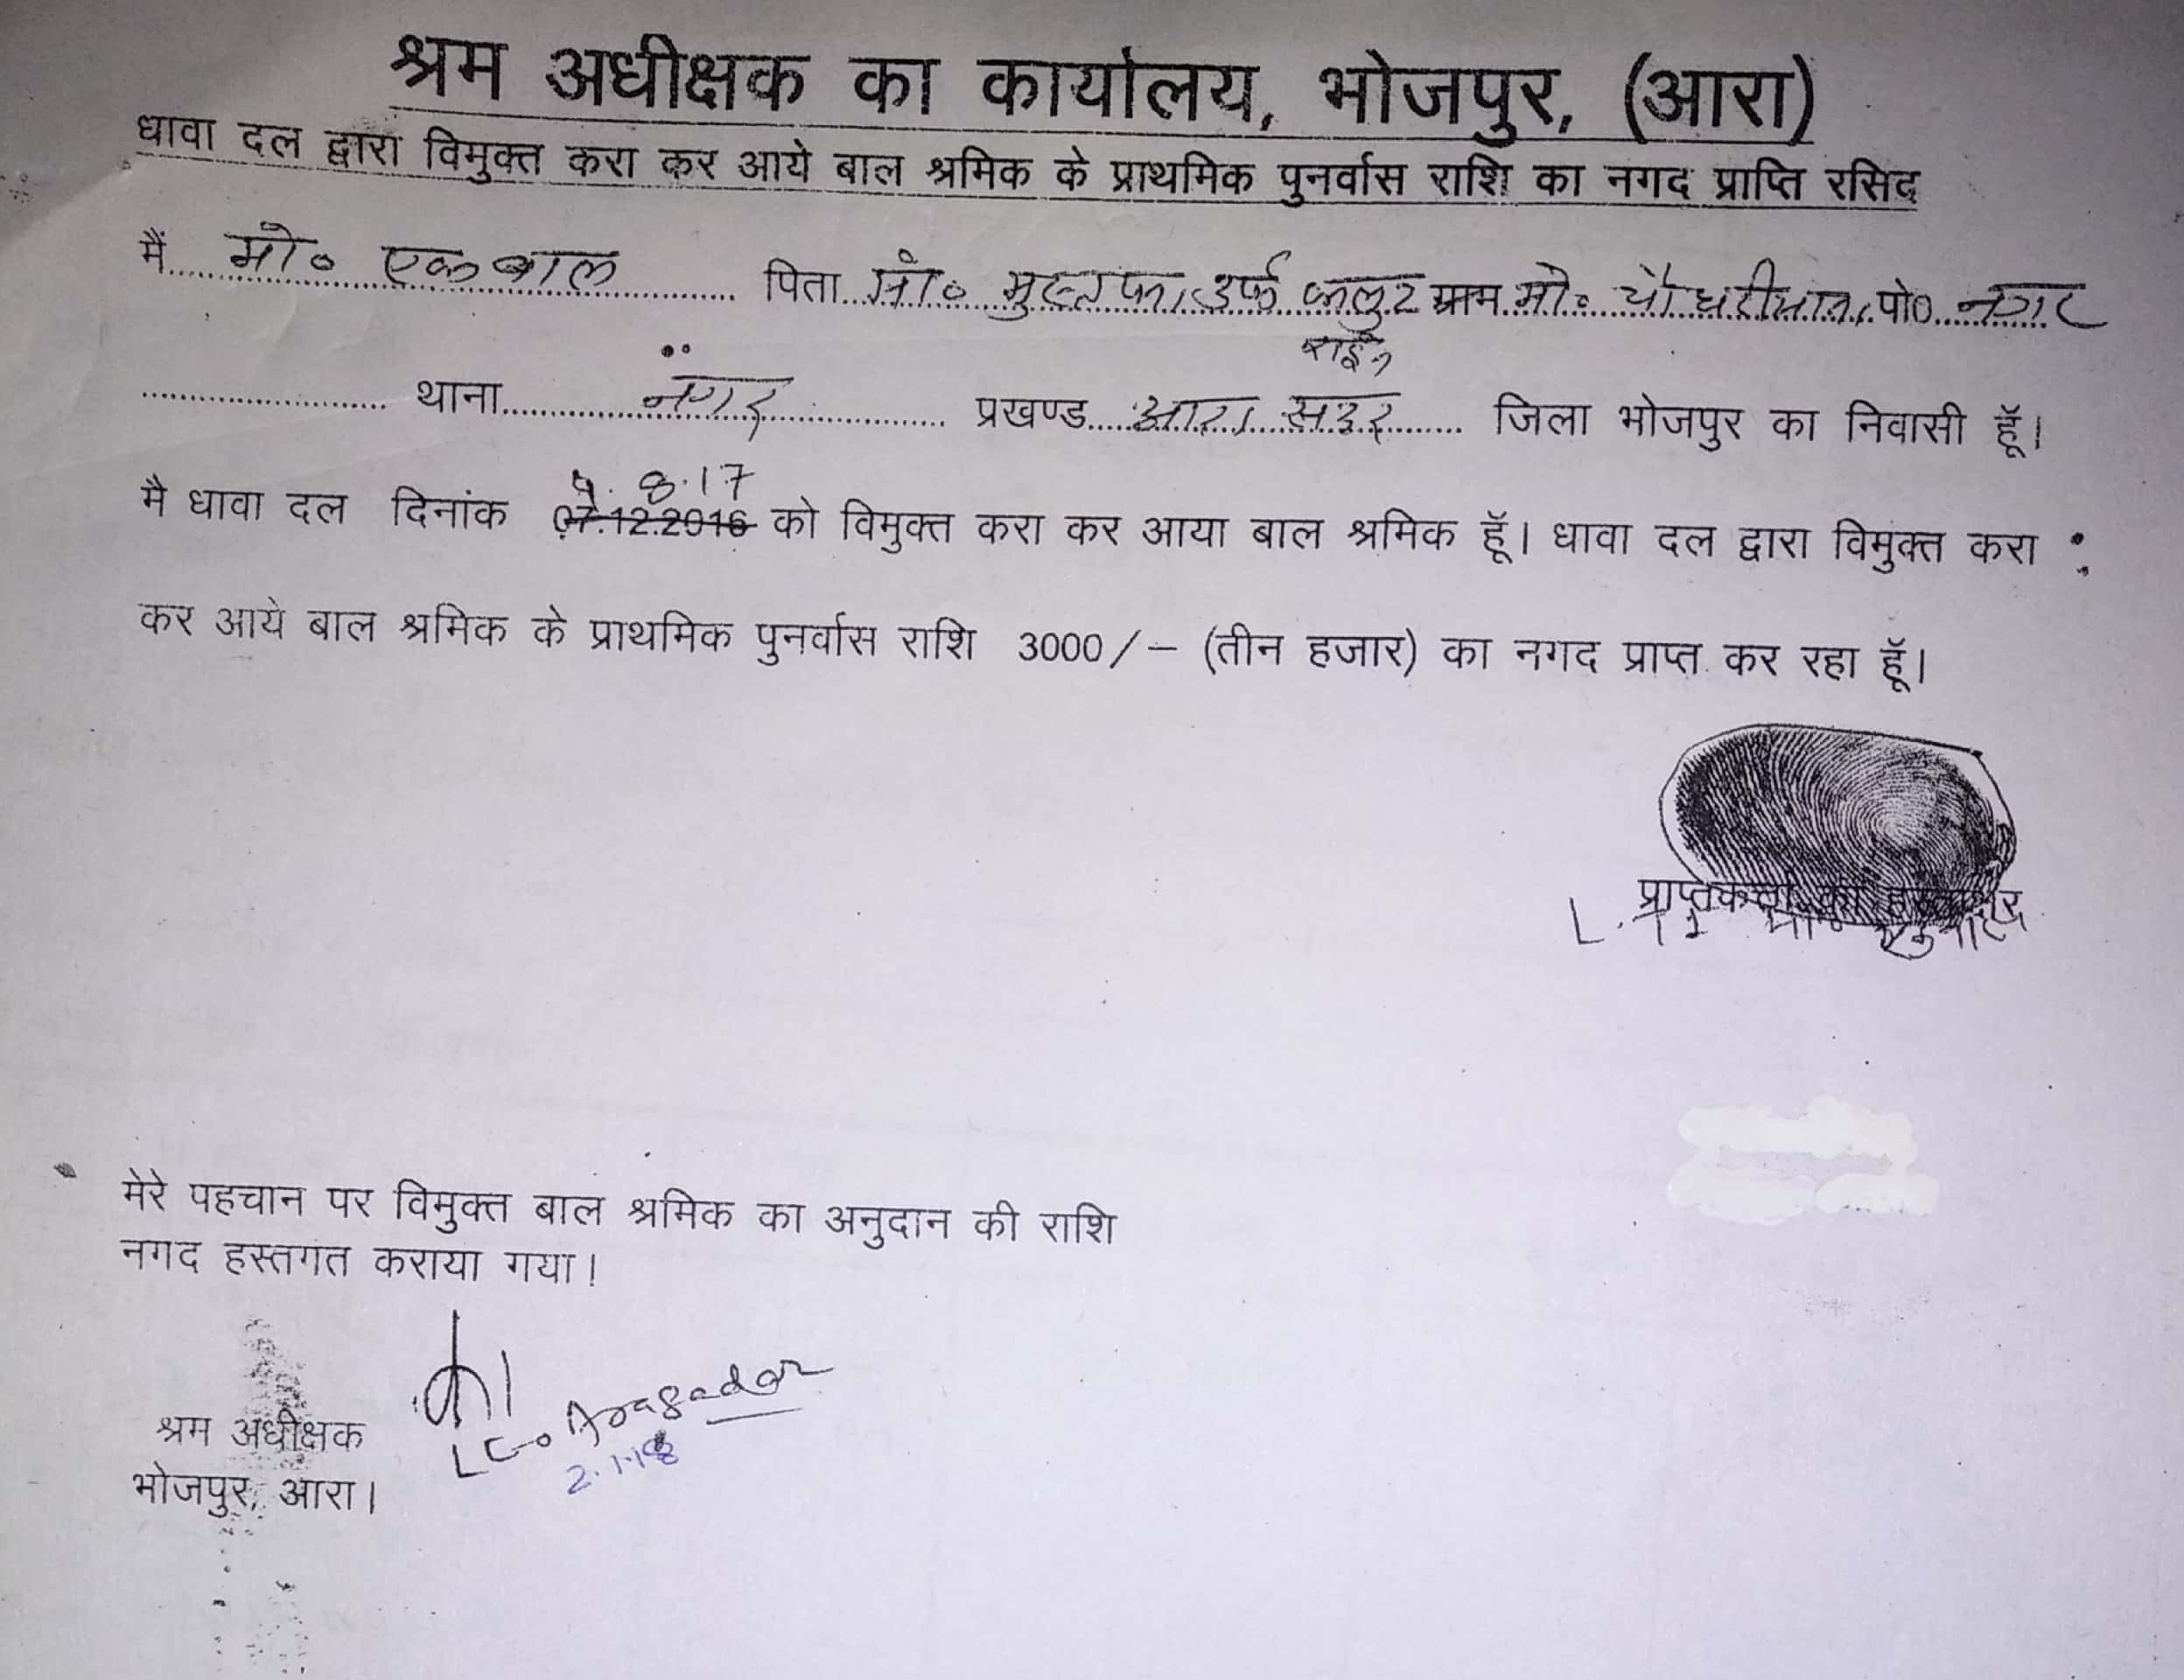 श्रम अधीक्षक का कार्यालय, भोजपुर, (आरा)
धावा दल द्वारा विमुक्त करा कर आये बाल श्रमिक के प्राथमिक पुनर्वास राशि का नगद प्राप्ति रसिद
मैं मो० एकबाल पिता मो० मुस्तफा उर्फ कलुट ग्राम मो० चौधरीयाना पो० नगर
राईन
थाना नगर प्रखण्ड आरा सदर जिला भोजपुर का निवासी हूॅं।
8.17
मै धावा दल दिनांक 07.12.2016 को विमुक्त करा कर आया बाल श्रमिक हूॅं। धावा दल द्वारा विमुक्त करा
कर आये बाल श्रमिक के प्राथमिक पुनर्वास राशि 3000/– (तीन हजार) का नगद प्राप्त कर रहा हूॅं।
प्राप्तकर्ता का हस्ताक्षर
मेरे पहचान पर विमुक्त बाल श्रमिक का अनुदान की राशि
नगद हस्तगत कराया गया।
श्रम अधीक्षक
भोजपुर, आरा।
2.1.18